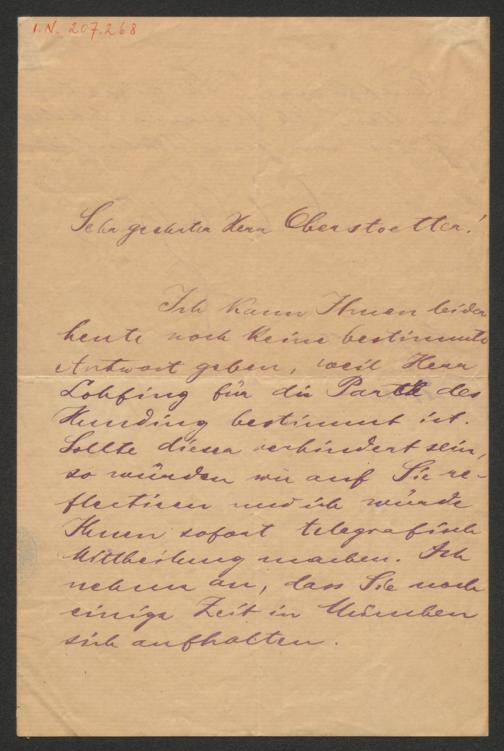 I.N. 207.268
Sehr geehrter Herr Oberstoetter!
Ich kann Ihnen leider
heute noch keine bestimmte
Antwort geben, weil Herr
Lohfing für die Partie des
Hunding bestimmt ist.
Sollte dieser verhindert sein,
so würden wir auf Sie re-
flectiren und ich würde
Ihnen sofort telegrafisch
Mittheilung machen. Ich
nehme an, dass Sie noch
einige Zeit in München
sich aufhalten.